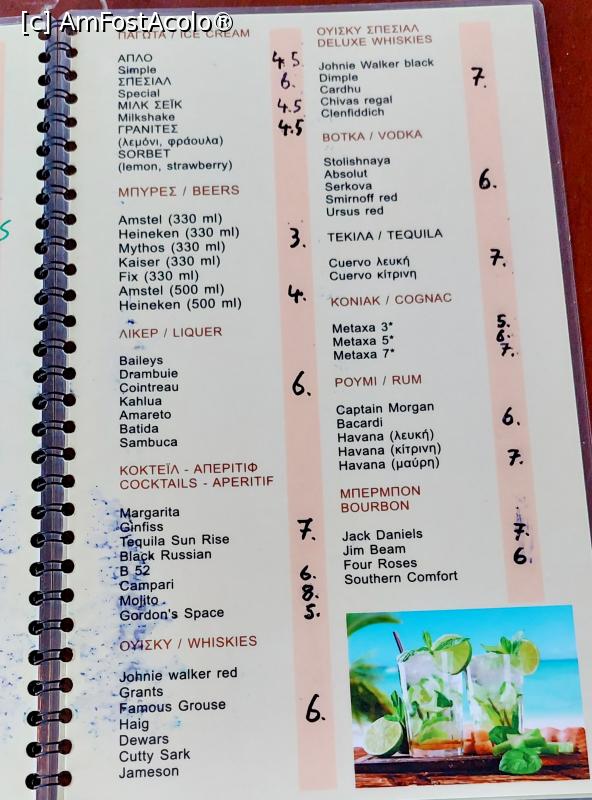 [c] AmFostAcolo®
ΠΑΓΩΤΑ / ICE CREAM
ΑΠΛΟ 4.5
Simple
ΣΠΕΣΙΑΛ 6.
Special
ΜΙΛΚ ΣΕΪΚ 4.5
Milkshake
ΓΡΑΝΙΤΕΣ 4.5
(λεμόνι, φράουλα)
SORBET
(lemon, strawberry)
ΜΠΥΡΕΣ / BEERS
Amstel (330 ml)
Heineken (330 ml) 3.
Mythos (330 ml)
Kaiser (330 ml)
Fix (330 ml)
Amstel (500 ml) 4.
Heineken (500 ml)
ΛΙΚΕΡ / LIQUER
Baileys
Drambuie
Cointreau 6.
Kahlua
Amareto
Batida
Sambuca
ΚΟΚΤΕΪΛ - ΑΠΕΡΙΤΙΦ
COCKTAILS - APERITIF
Margarita
Ginfiss 7.
Tequila Sun Rise
Black Russian
B 52 6.
Campari
Mojito 8.
Gordon's Space 5.
ΟΥΙΣΚΥ / WHISKIES
Johnie walker red
Grants
Famous Grouse 6.
Haig
Dewars
Cutty Sark
Jameson
ΟΥΙΣΚΥ ΣΠΕΣΙΑΛ
DELUXE WHISKIES
Johnie Walker black
Dimple 7.
Cardhu
Chivas regal
Clenfiddich
ΒΟΤΚΑ / VODKA
Stolishnaya
Absolut
Serkova 6.
Smirnoff red
Ursus red
ΤΕΚΙΛΑ / TEQUILA
Cuervo λευκή 7.
Cuervo κίτρινη
ΚΟΝΙΑΚ / COGNAC
Metaxa 3* 5.
Metaxa 5* 6.
Metaxa 7* 7.
ΡΟΥΜΙ / RUM
Captain Morgan
Bacardi 6.
Havana (λευκή)
Havana (κίτρινη) 7.
Havana (μαύρη)
ΜΠΕΡΜΠΟΝ
BOURBON
Jack Daniels 7.
Jim Beam 6.
Four Roses
Southern Comfort